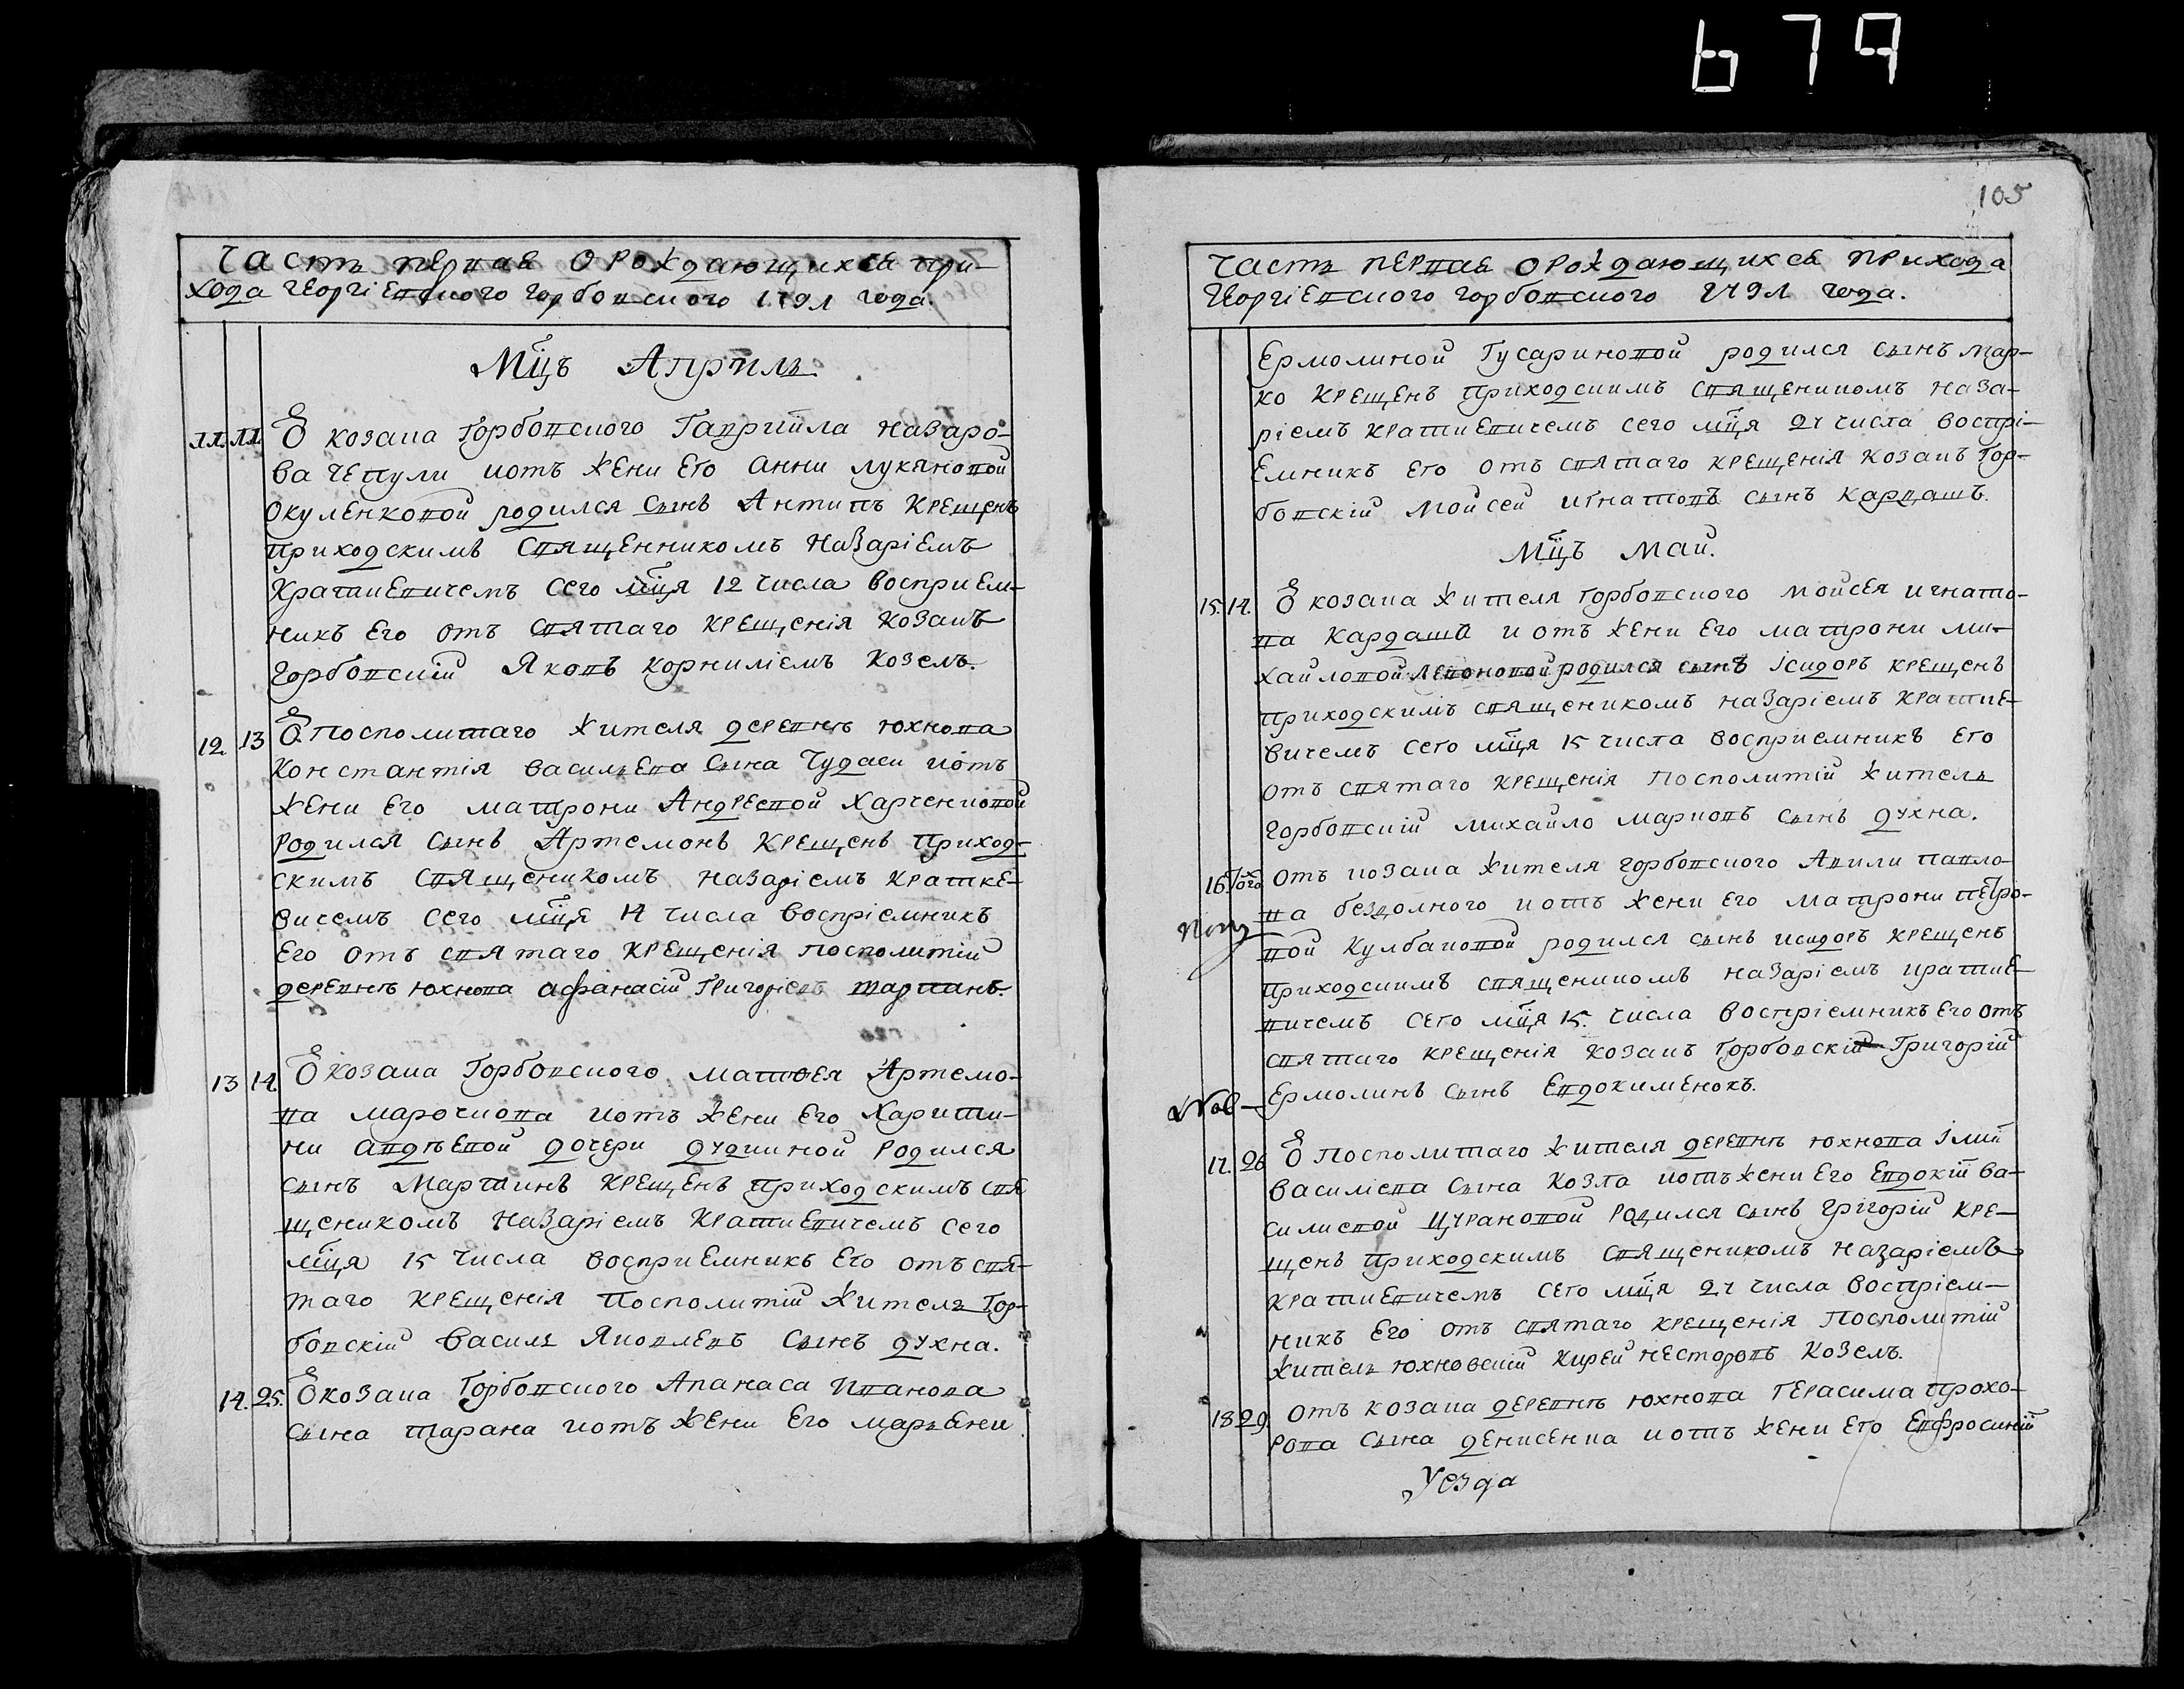 679
Часть первая о рождающихся при-
хода Георгіевского Горбовского 1791 года.
Мцъ Априль
11. 11. Ѿ козака Горбовского Гавріила Назаро-
ва Чепули и отъ жени его Анни Лукяновой
Окуленковой родился сынъ Антипъ крещенъ
приходскимъ священникомъ Назаріемъ
Краткевичемъ сего мця 12 числа восприем-
никъ его отъ святаго крещенія козакъ
Горбовскій Яковъ Корниліемъ Козелъ.
12 13 Ѿ посполитаго жителя деревнѣ Юхнова
Константія Василева сына Чудаси и отъ
жени его Матрони Андреевой Харченковой
родился сынъ Артемонъ крещенъ приход-
скимъ священикомъ Назаріемъ Кратке-
вичемъ сего мця 14 числа воспріемникъ
его отъ святаго крещенія посполитій
деревнѣ Юхнова Афанасій Григоріевъ
13 14. Ѿ козака Горбовского Матвея Артемо-
ва Марочкова и отъ жени его Харити-
ни Авдѣевой дочери Дудкиной родился
сынъ Мартинъ крещенъ приходскимъ свя
щеникомъ Назаріемъ Краткевичемъ сего
мця 15 числа восприемникъ его отъ свя-
таго крещенія посполитій житель Гор-
бовскій Василь Яковлевъ сынъ Духна.
14. 25. Ѿ козака Горбовского Апанаса Иванова
сына Тарана и отъ жени его Маряни
105
Часть первая о рождающихся прихода
Георгіевского Горбовского 1791 года.
Ермолиной Гусариновой родился сынъ Мар-
ко крещенъ приходскимъ священикомъ Наза-
ріемъ Краткевичемъ сего мця 27 числа воспрі-
емникъ его отъ святаго крещенія козакъ Гор-
бовскій Мойсей Игнатовъ сынъ Кардашъ.
Мцъ Май.
15. 14. Ѿ козака жителя Горбовского Мойсея Игнато-
ва Кардаша и отъ жени его Матрони Ми-
хайловой Леоновой родился сынъ Ісидоръ крещенъ
приходскимъ священикомъ Назаріемъ Кратке-
вичемъ сего мця 15 числа восприемникъ его
отъ святаго крещенія посполитій житель
Горбовскій Михайло Марковъ сынъ Духна.
16. Того отъ козака жителя Горбовского Павло-
ва Бездолного и отъ жени его Матрони Петро-
вой Кулбаковой родился сынъ Исидоръ крещенъ
приходскимъ священикомъ Назаріемъ Кратке-
вичемъ сего мця 15. числа воспріемникъ его отъ
святаго крещенія козакъ Горбовскій Григорій
Ермолинъ сынъ Евдокименокъ.
17. 26 Ѿ посполитаго жителя деревнѣ Юхнова Іліи
Василіева сына Козла и отъ жени его Евдокіи Ва-
силиевой Цурановой родился сынъ Григорій кре-
щенъ приходскимъ священикомъ Назаріемъ
Краткевичемъ сего мця 27 числа воспріем-
никъ его отъ святаго крещенія посполитій
житель Юхновскій Кирей Несторовъ Козелъ.
18 29. отъ козака деревнѣ Юхнова Герасима Прохо-
рова сына Денисенка и отъ жени его Евфросиніи
Уезда